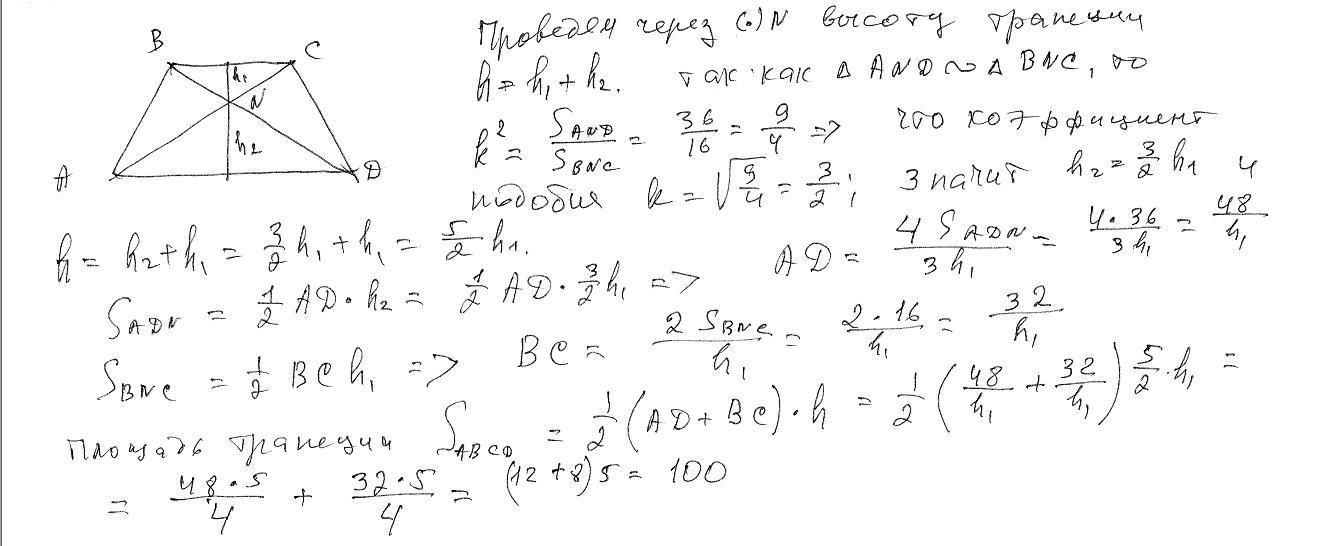 Проведём через (·) N высоту трапеции
B C h₁ N h₂ A D
h = h₁ + h₂. так как △ AND ∾ △ BNC, то
k² = S_AND / S_BNC = 36/16 = 9/4 => что коэффициент
подобия k = √(9/4) = 3/2; значит h₂ = 3/2 h₁ и
h = h₂ + h₁ = 3/2 h₁ + h₁ = 5/2 h₁.
S_ADN = 1/2 AD · h₂ = 1/2 AD · 3/2 h₁ => AD = 4 S_ADN / 3 h₁ = 4·36 / 3 h₁ = 48 / h₁
S_BNC = 1/2 BC h₁ => BC = 2 S_BNC / h₁ = 2·16 / h₁ = 32 / h₁
Площадь трапеции S_ABCD = 1/2 (AD + BC) · h = 1/2 (48/h₁ + 32/h₁) 5/2 · h₁ =
= 48·5 / 4 + 32·5 / 4 = (12 + 8) 5 = 100